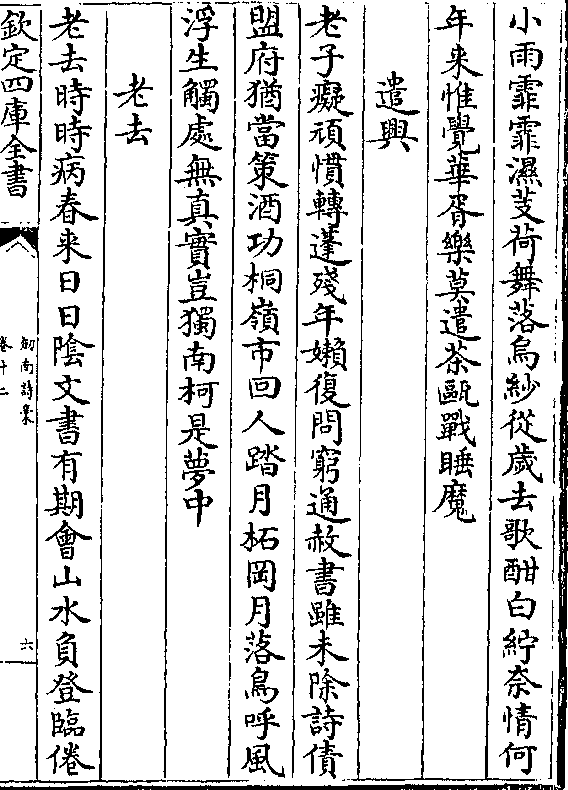 小雨霏霏濕芰荷舞落烏紗從歲去歌酣白紵奈情何
年来惟覺華胥樂莫遣茶甌戰睡魔
遣興
老子癡頑慣轉蓬殘年嬾復問窮通赦書雖未除詩債
盟府猶當策酒功桐嶺市回人踏月柘岡月落鳥呼風
浮生觸處無真實豈獨南柯是夢中
老去
老去時時病春来日日隂文書有期會山水負登臨倦
欽定四庫全書
劒南詩槀
卷十二
六